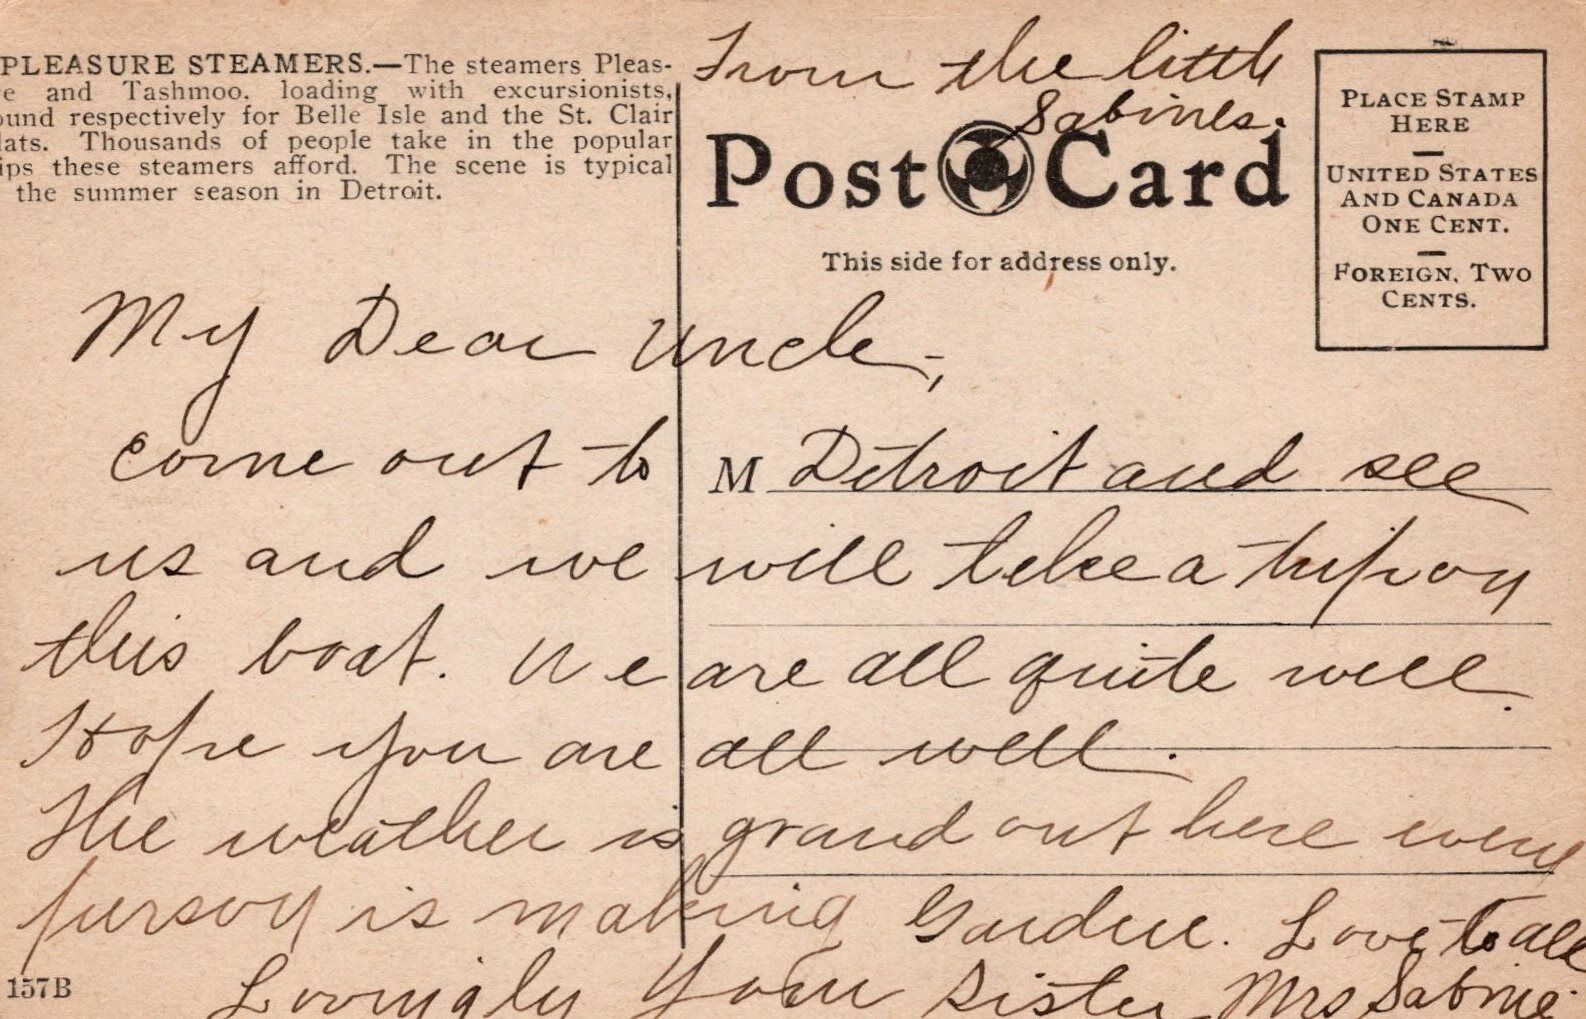 PLEASURE STEAMERS.—The steamers Pleas-
e and Tashmoo, loading with excursionists,
ound respectively for Belle Isle and the St. Clair
lats. Thousands of people take in the popular
ips these steamers afford. The scene is typical
the summer season in Detroit.
From the little
Sabines.
Post Card
This side for address only.
PLACE STAMP
HERE
UNITED STATES
AND CANADA
ONE CENT.
FOREIGN, TWO
CENTS.
My Dear Uncle,
Come out to M Detroit and see
us and we will take a trip on
this boat. We are all quite well.
Hope you are all well.
The weather is grand out here every
person is making Garden. Love to all
157B
Lovingly Your Sister Mrs Sabine.